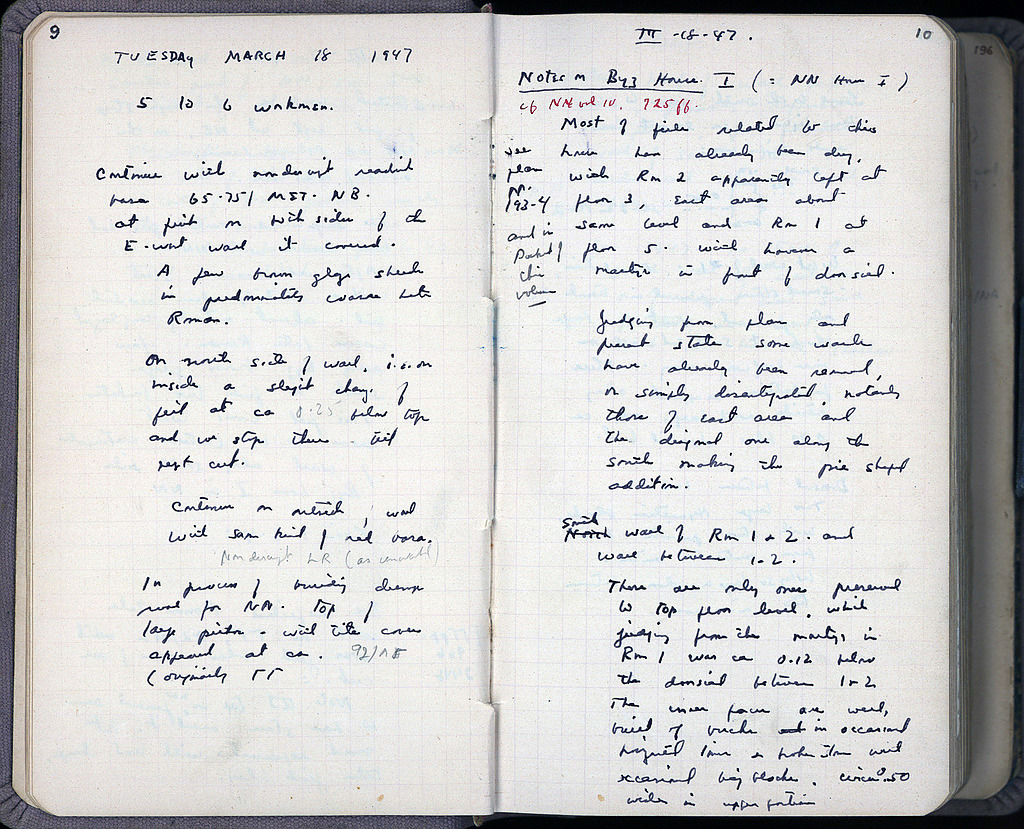 9
TUESDAY MARCH 18 1947
5 to 6 workmen.
Continue with nondescript reddish
at first on both sides of the
E-west wall it covered.
A few brown glaze sherds
in predominately coarse late
Roman.
On north side of wall, i.e. on
inside a slight change of
fill at ca 0.25 below top
and we stop there till
rest cut.
Continue on outside, wall
with same kind of red
Nondescript LR (as
In process of building
road for NN. Top of
large pithos with tile cover
appeared at ca. 92/ΛΕ
(originally ΓΓ
10
III-18-47.
Notes on Byz House I (= NN House I)
cf NN vol IV. 725 ff.
Most of fill related to this
house has already been dug,
with Rm 2 apparently left at
floor 3, East area about
same level and Rm 1 at
floor 5. with however a
in front of
see
plan
p.
193-4
and in
Pocket
this
volume
Judging from plan and
present state some walls
have already been removed,
or simply disintegrated, notably
those of east area and
the diagonal one along the
south making the pie shaped
addition.
South
North wall of Rm 1 + 2. and
wall between 1-2.
These are only ones preserved
to top floor level, which
judging from the in
Rm 1 was ca 0.12 below
the between 1+2
The inner faces are well,
built of in occasional
broken stone and
occasional big blocks. circa 0.50
wide in upper portion
196